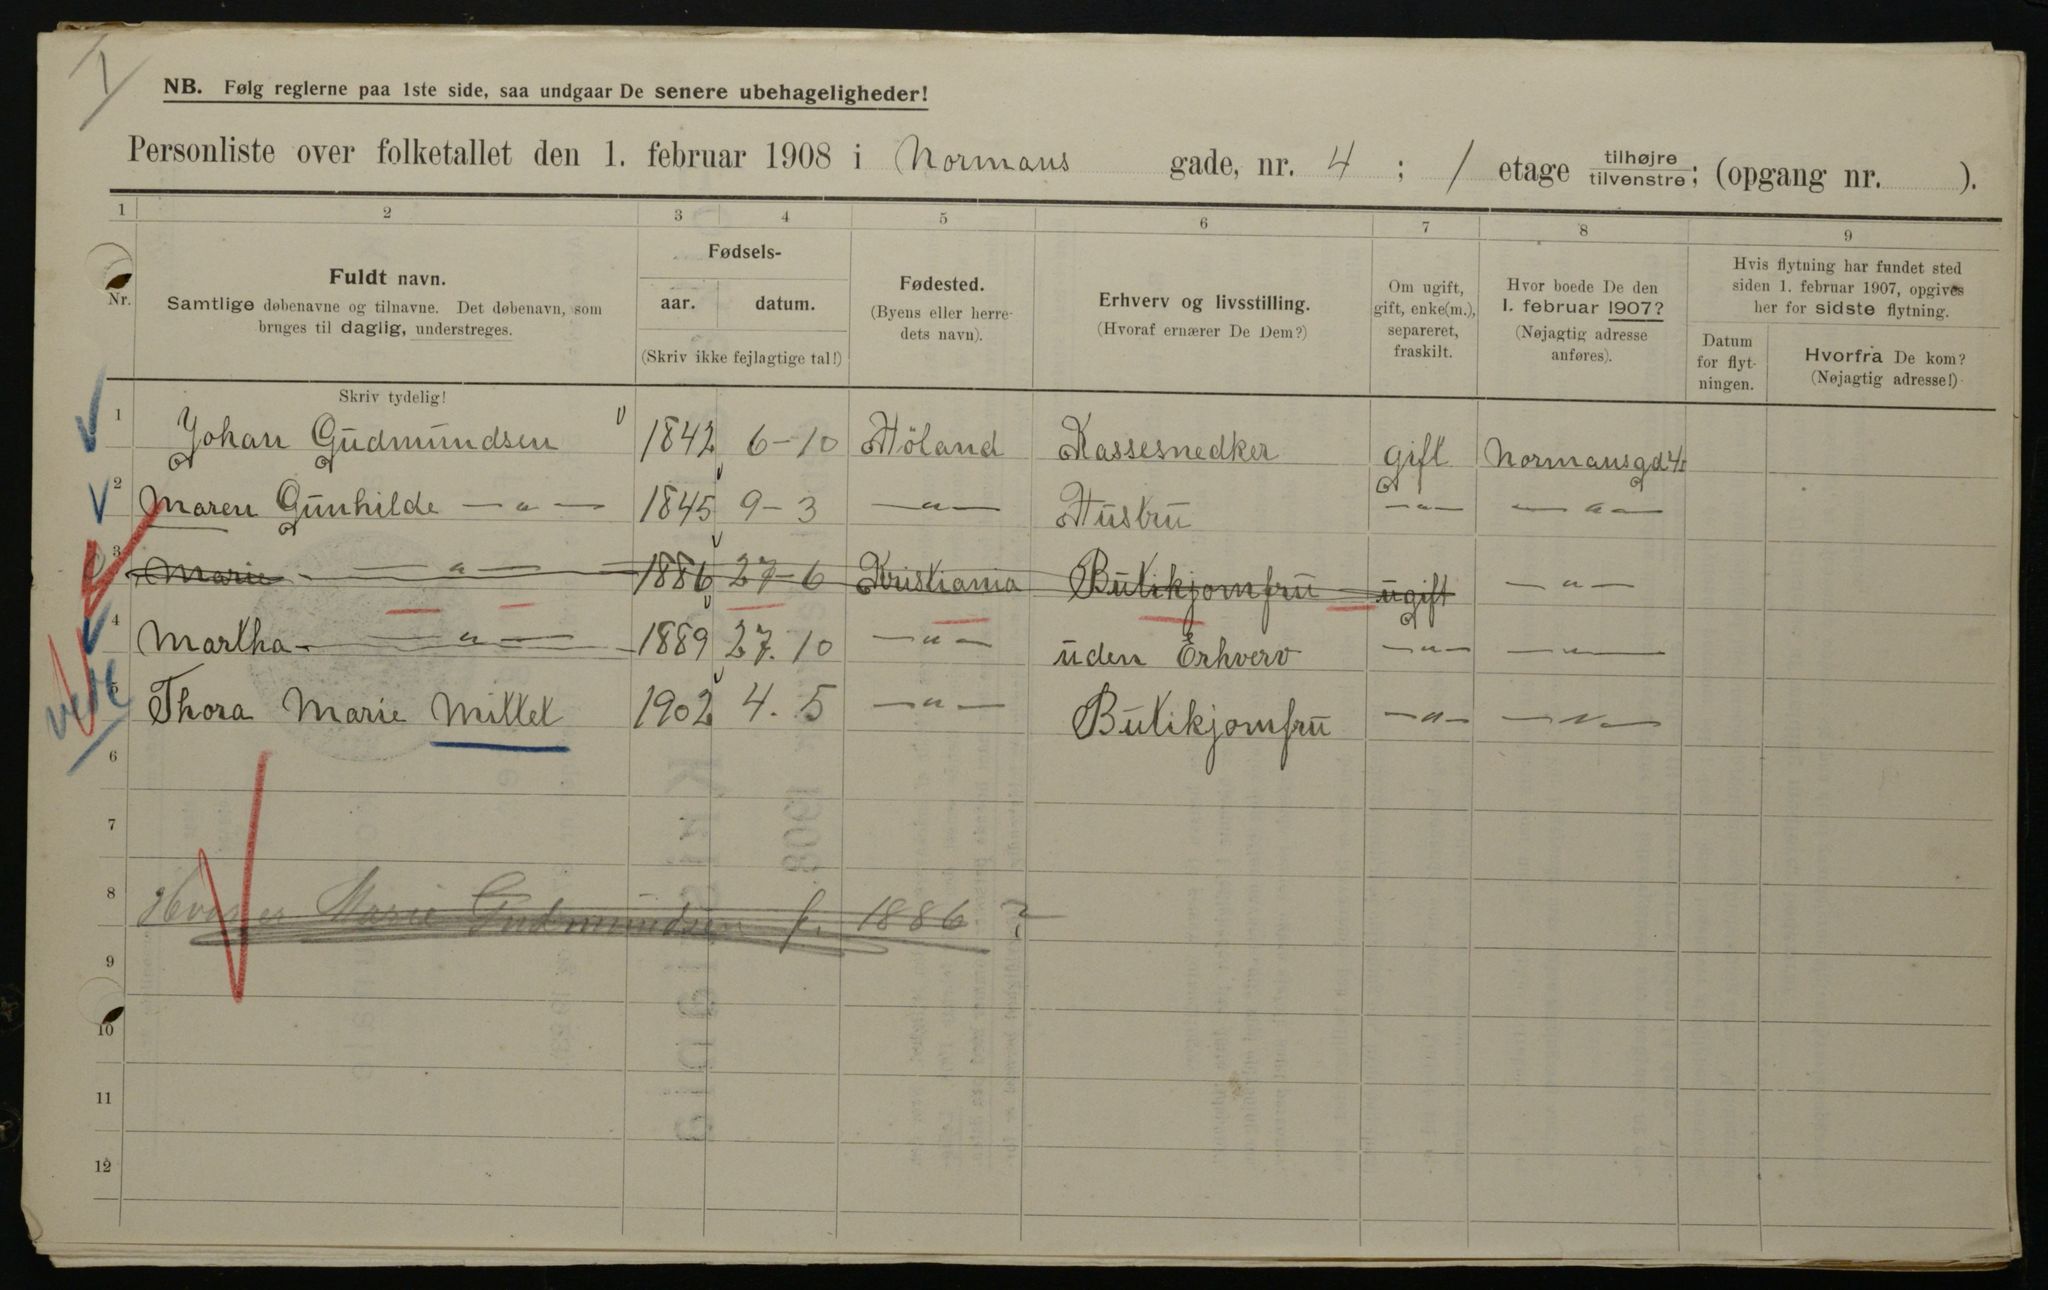 NB. Følg reglerne paa 1ste side, saa undgaar De senere ubehageligheder!
Personliste over folketallet den 1. februar 1908 i Normans gade, nr. 4 ; 1 etage tilhøjre tilvenstre; (opgang nr. ).
1 2 3 4 5 6 7 8 9
Nr.
Fuldt navn.
Samtlige døbenavne og tilnavne. Det døbenavn, som
bruges til daglig, understreges.
Skriv tydelig!
Fødsels-
aar. datum.
(Skriv ikke fejlagtige tal!)
Fødested.
(Byens eller herre-
dets navn).
Erhverv og livsstilling.
(Hvoraf ernærer De Dem?)
Om ugift,
gift, enke(m.),
separeret,
fraskilt.
Hvor boede De den
1. februar 1907?
(Nøjagtig adresse
anføres).
Hvis flytning har fundet sted
siden 1. februar 1907, opgives
her for sidste flytning.
Datum
for flyt-
ningen.
Hvorfra De kom?
(Nøjagtig adresse!)
1 Johan Gudmundsen 1842 6-10 Höland Kassesnedker gift Normansgd 4
2 Maren Gunhilde —"— 1845 9-3 —"— Hustru —"— —"—
3 Marie —"— 1886 27-6 Kristiania Butikjomfru ugift —"—
4 Martha —"— 1889 27.10 —"— uden Erhverv —"— —"—
5 Thora Marie Mittet 1902 4.5 —"— Butikjomfru —"— —"—
6
7
8 Hvor er Marie Gudmundsen f. 1886 ?
9
10
11
12